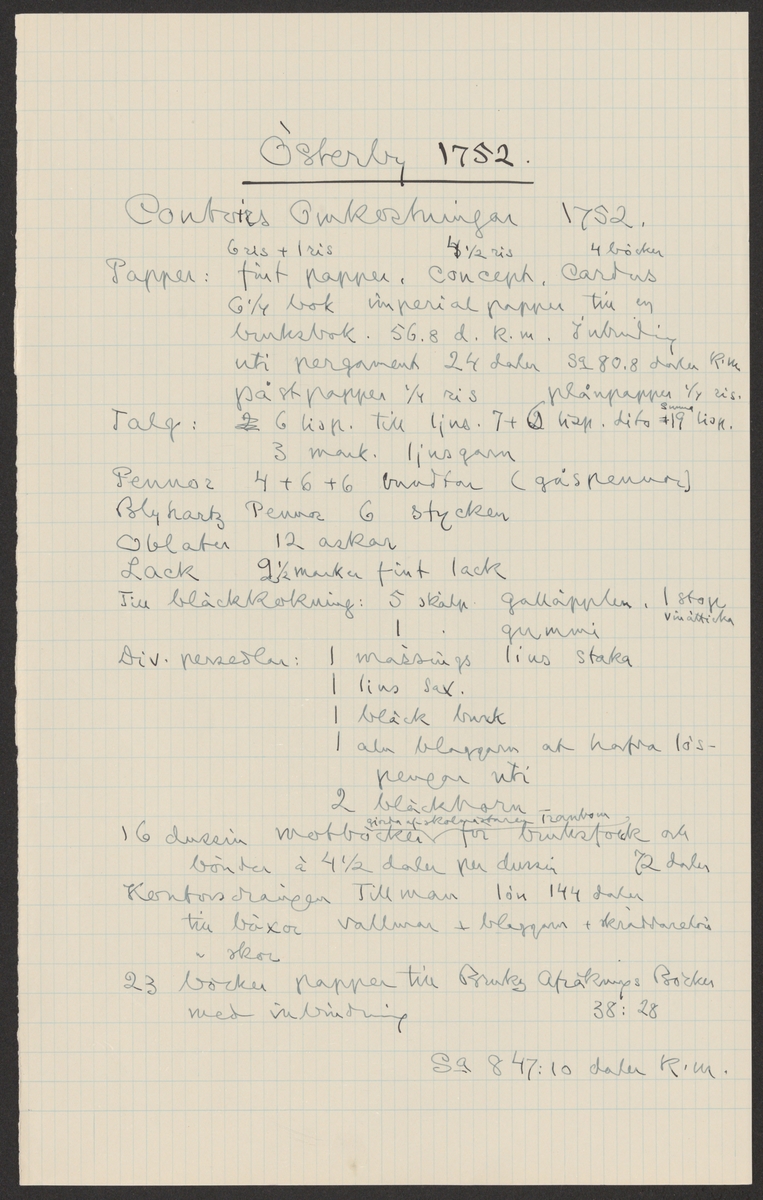 Österby 1752.
Contoirs Omkostningar 1752.
6 ris + 1 ris 4 1/2 ris 4 böcker
Papper: fint papper, Concept, Cardus
6 1/4 bok imperial papper till en
bruksbok. 56.8 d. K.m. Inbinding
uti pergament 24 daler Sa 80.8 daler K.m
påstpapper 1/4 ris plånpapper 1/4 ris.
Talg: 6 lisp. till ljus. 7+6 lisp. dito Summa 19 lisp.
3 mark. ljusgarn
Pennor 4+6+6 bundtar (gåspennor)
Blyhartz Pennor 6 stycken
Oblater 12 askar
Lack 9 1/2 marker fint lack
Till bläckkokning: 5 skålp. galläpplen, 1 stop
vinätticka
1 . gummi
Div. persedlar: 1 mässings lius staka
1 lius sax.
1 bläck burk
1 aln blaggarn at hafva lös-
pengar uti
2 bläckhorn
gjorda af skolmästaren Trambom
16 dussin motböcker för bruksfolk och
bönder à 4 1/2 daler per dussin 72 daler
Kontorsdrängen Tillman lön 144 daler
till böxor vallmar + blaggarn + skräddarelön
" skor
23 böcker papper till Bruks Afräknings Böcker
med inbindning 38:28
Sa 847:10 daler K.m.